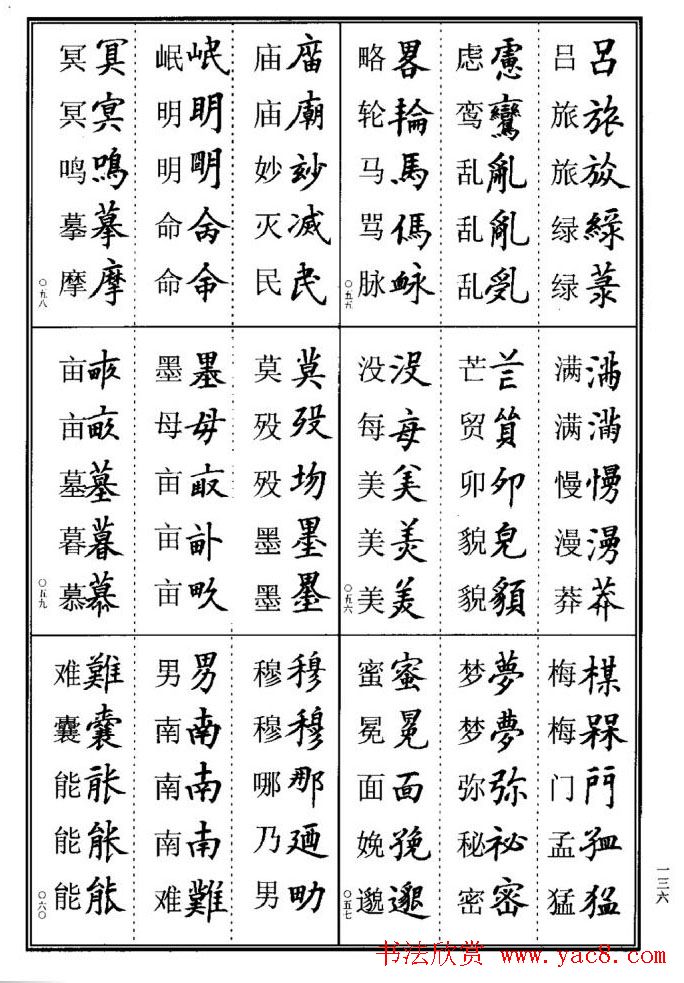 呂旅綠菉
吕旅旅绿绿
慮鸞亂亂
虑鸾乱乱乱
畧輪馬傌
略轮马骂脉
滿慢漫莽
满满慢漫莽
芒貿卯皃
芒贸卯貌貌
没每美羙美
没每美美美
楳槑門孟猛
梅梅门孟猛
夢夢弥祕密
梦梦弥秘密
蜜冕面娩邈
蜜冕面娩邈
〇五五
〇五六
〇五七
庿廟玅滅民
庙庙妙灭民
岷明明命命
岷明明命命
冥冥鳴摹摩
冥冥鸣摹摩
莫歿墨墨
莫殁殁墨墨
墨母
墨母亩亩亩
墓暮慕
亩亩墓暮慕
穆穆那廼男
穆穆哪乃男
男南南南難
男南南南难
難囊能能能
难囊能能能
〇五八
〇五九
〇六〇
一三六
书法欣赏 www.yac8.com